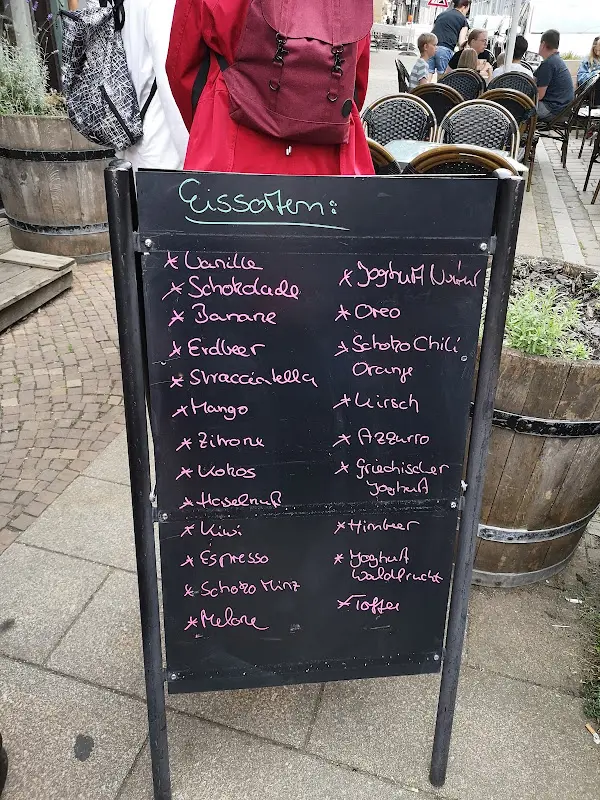 Eissorten:
* Vanille
* Schokolade
* Banane
* Erdbeer
* Stracciatella
* Mango
* Zitrone
* Kokos
* Haselnuß
* Kiwi
* Espresso
* Schoko Minz
* Melone
* Joghurt
* Oreo
* Schoko Chili
Orange
* Kirsch
* Azzurro
* Griechischer
Joghurt
* Himbeer
* Joghurt
Waldfrucht
* Toffee